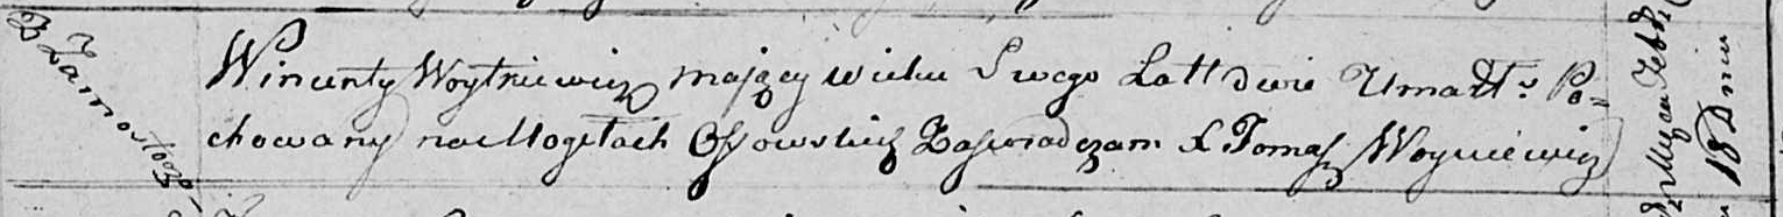 Z Zamostocza
Wincenty Woytkiewicz mający wieku Swego Latt dwie Umarł: Po=
chowany na Mogiłach Osowskich Zaswiadczam X Tomasz Woyniewicz
18 Dnia